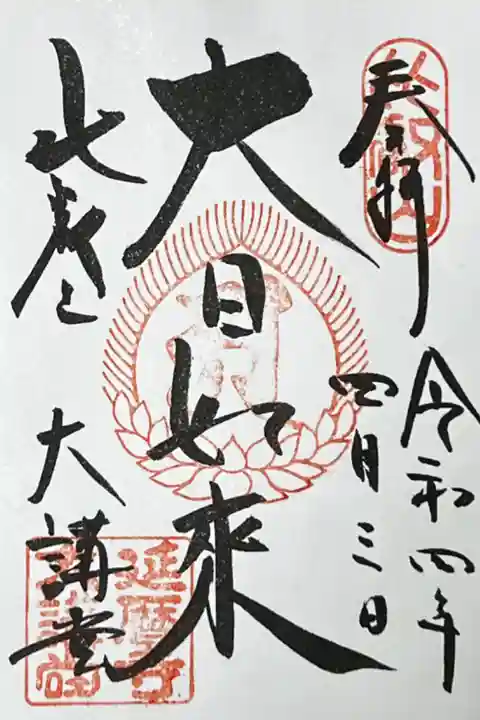 奉拝
令和四年
四月三日
大日如來
比叡山
大講堂
延暦寺